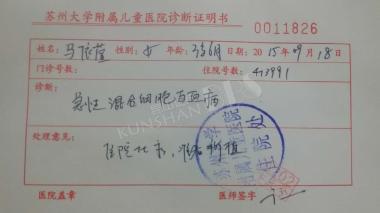 苏州大学附属儿童医院诊断证明书
0011826
姓名 马依莲 性别 女 年龄 3岁6月 日期:2015年9月18日
门诊号数: 住院号数: 473991
诊断:
急性混合细胞白血病
处理意见:
住院化疗,
医院盖章 医师签字
苏州大学附属儿童医院
住院处
KUNSHAN